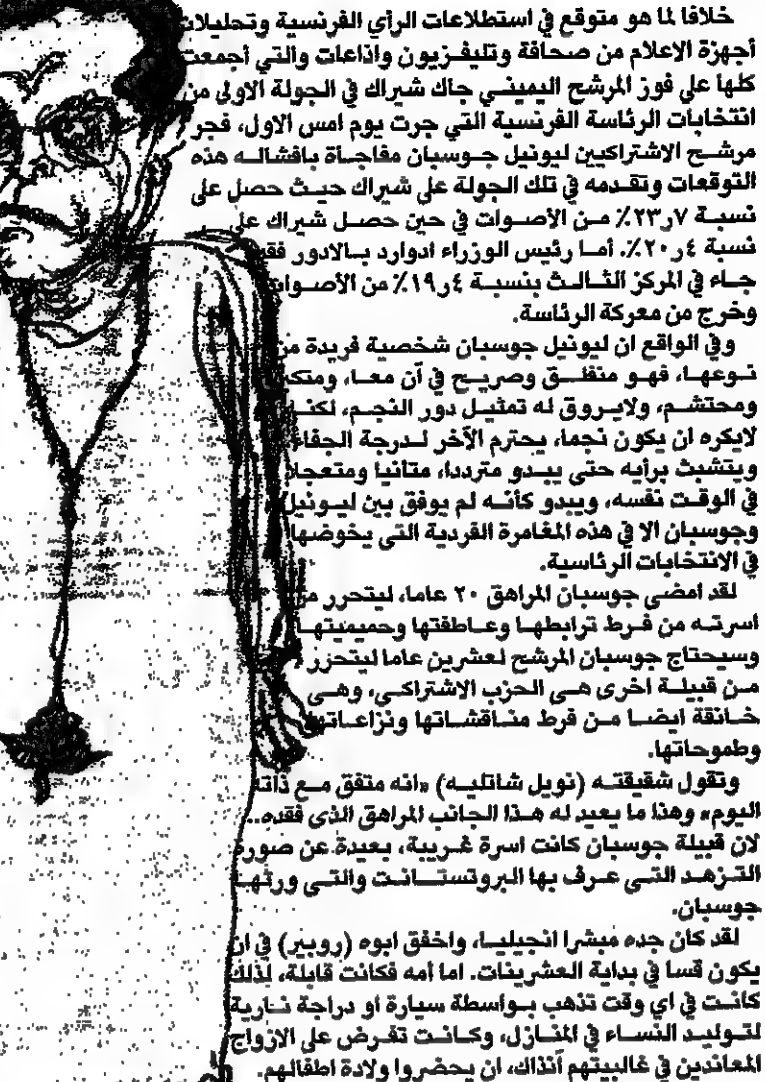 خلافا لما هو متوقع في استطلاعات الرأي الفرنسية وتحليلات
أجهزة الاعلام من صحافة وتليفـزيون واذاعات والتي أجمعت
كلها على فوز المرشح اليمينـي جاك شيراك في الجولة الاولى من
انتخابات الرئاسة الفرنسية التي جرت يوم امس الاول، فجر
مرشـح الاشتراكيين ليونيل جـوسبان مفاجـأة بافشالـه هذه
التوقعات وتقـدمه في تلك الجولة على شيراك حيـث حصل على
نسبـة ٧ر٢٣٪ مـن الأصـوات في حين حصـل شيراك على
نسبة ٤ر٢٠٪. أمـا رئيس الوزراء ادوارد بـالادور فقد
جـاء في المركز الثـالـث بنسبـة ٤ر١٩٪ من الأصـوات
وخرج من معركة الرئاسة.
وفي الواقع ان ليونيل جوسبان شخصية فريدة من
نـوعهـا، فهـو منغلـق وصريـح في آن معـا، ومتكبر
ومحتشـم، ولايـروق له تمثيـل دور النجـم، لكنـه
لايكره ان يكون نجما، يحترم الآخر لـدرجة الجفاء
ويتشبث برأيه حتى يبـدو مترددا، متانيا ومتعجلا
في الوقـت نفسه، ويبدو كأنـه لم يوفق بين ليـونيل
وجوسبان الا في هذه المغامرة الفردية التي يخوضها
في الانتخابات الرئاسية.
لقد امضى جوسبان المراهق ٢٠ عاما، ليتحرر من
اسرتـه من فـرط ترابطهـا وعـاطفتها وحميميتهـا
وسيحتاج جوسبان المرشح لعشرين عاما ليتحرر
مـن قبيلـة اخرى هـى الحزب الاشتراكـي، وهـى
خـانقة ايضـا مـن فرط منـاقشـاتها ونزاعـاتها
وطموحاتها.
وتقول شقيقتـه (نويل شاتليـه) «انه متفق مـع ذاته
اليوم» وهذا ما يعيد له هـذا الجانب المراهق الذى فقده..
لان قبيلة جوسبان كانت اسرة غـريبة، بعيدة عن صورة
التـزهـد التـى عـرف بها البروتستـانـت والتـى ورثهـا
جوسبان.
لقد كان جده مبشرا انجيليـا، واخفق ابوه (روبير) في ان
يكون قسا في بداية العشرينات. اما أمه فكانت قابلة، لذلك
كانـت في اي وقت تذهب بـواسطة سيارة او دراجة نـارية
لتـوليـد النسـاء في المنـازل، وكـانـت تفـرض على الازواج
المعاندين في غالبيتهم آنذاك، ان يحضروا ولادة اطفالهم.